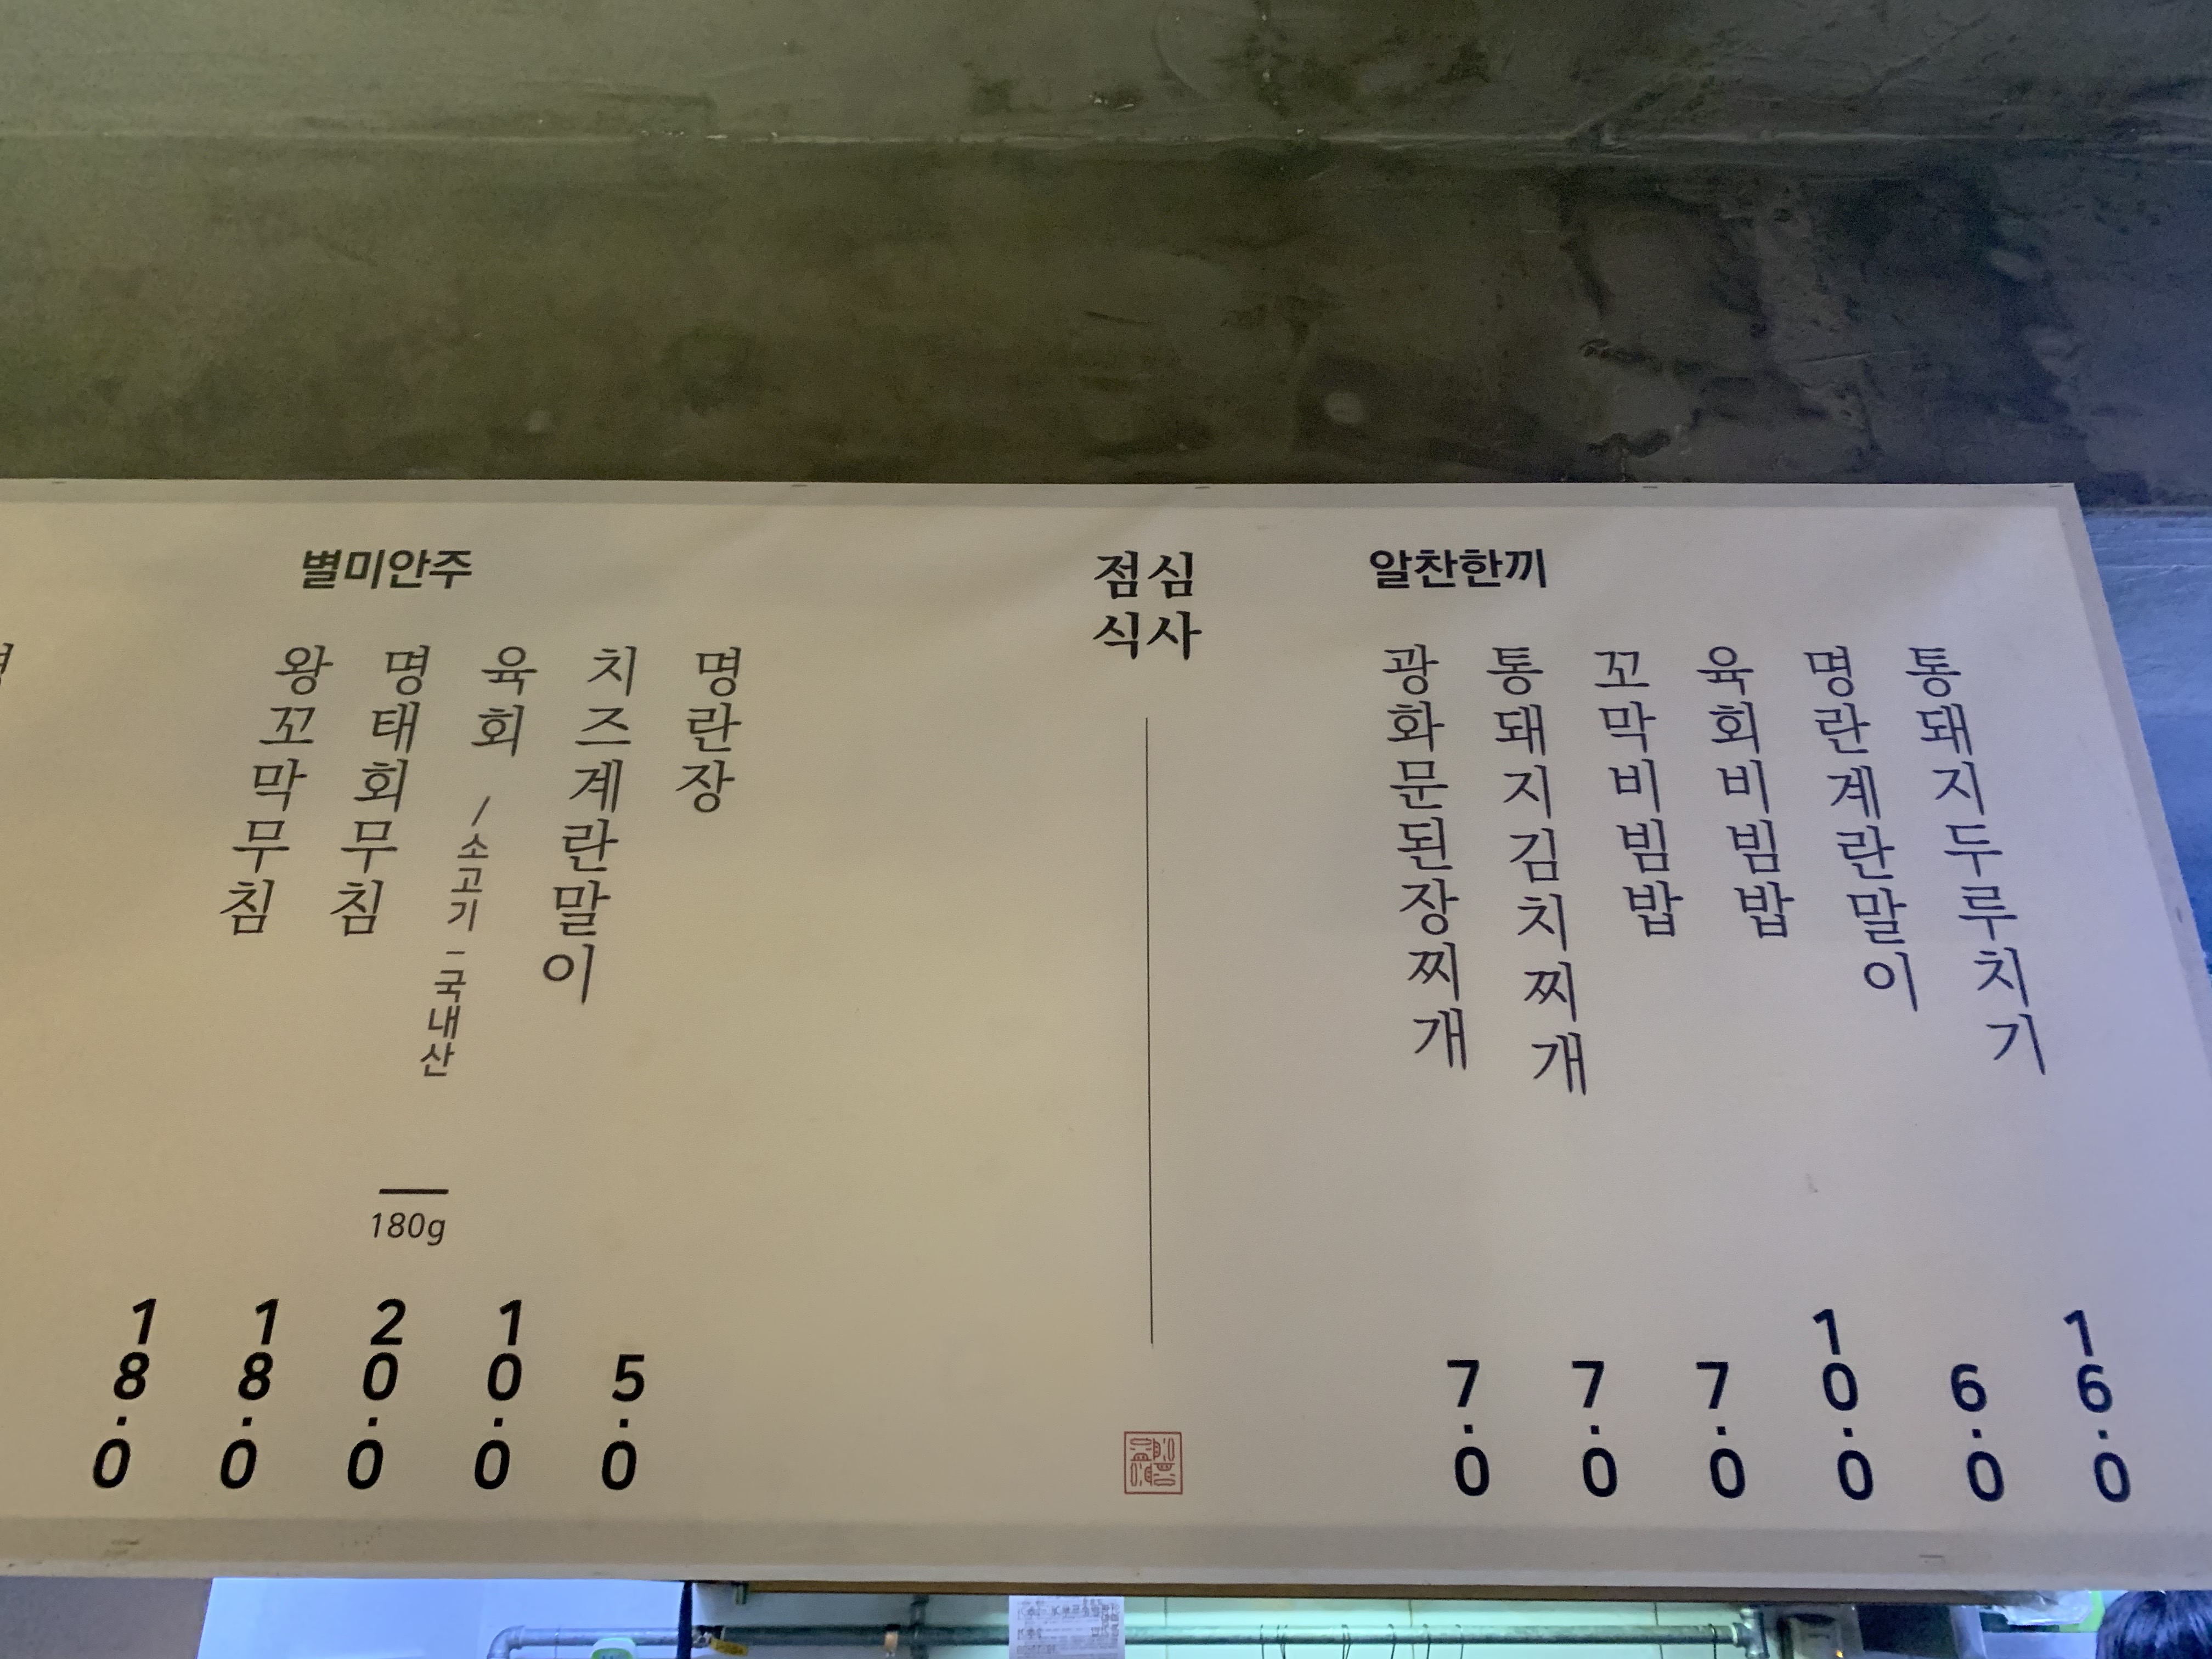 별미안주
왕꼬막무침
18.0
명태회무침
18.0
육회 / 소고기 - 국내산
180g
20.0
치즈계란말이
10.0
명란장
5.0
점심
식사
알찬한끼
광화문된장찌개
7.0
통돼지김치찌개
7.0
꼬막비빔밥
7.0
육회비빔밥
10.0
명란계란말이
6.0
통돼지두루치기
16.0